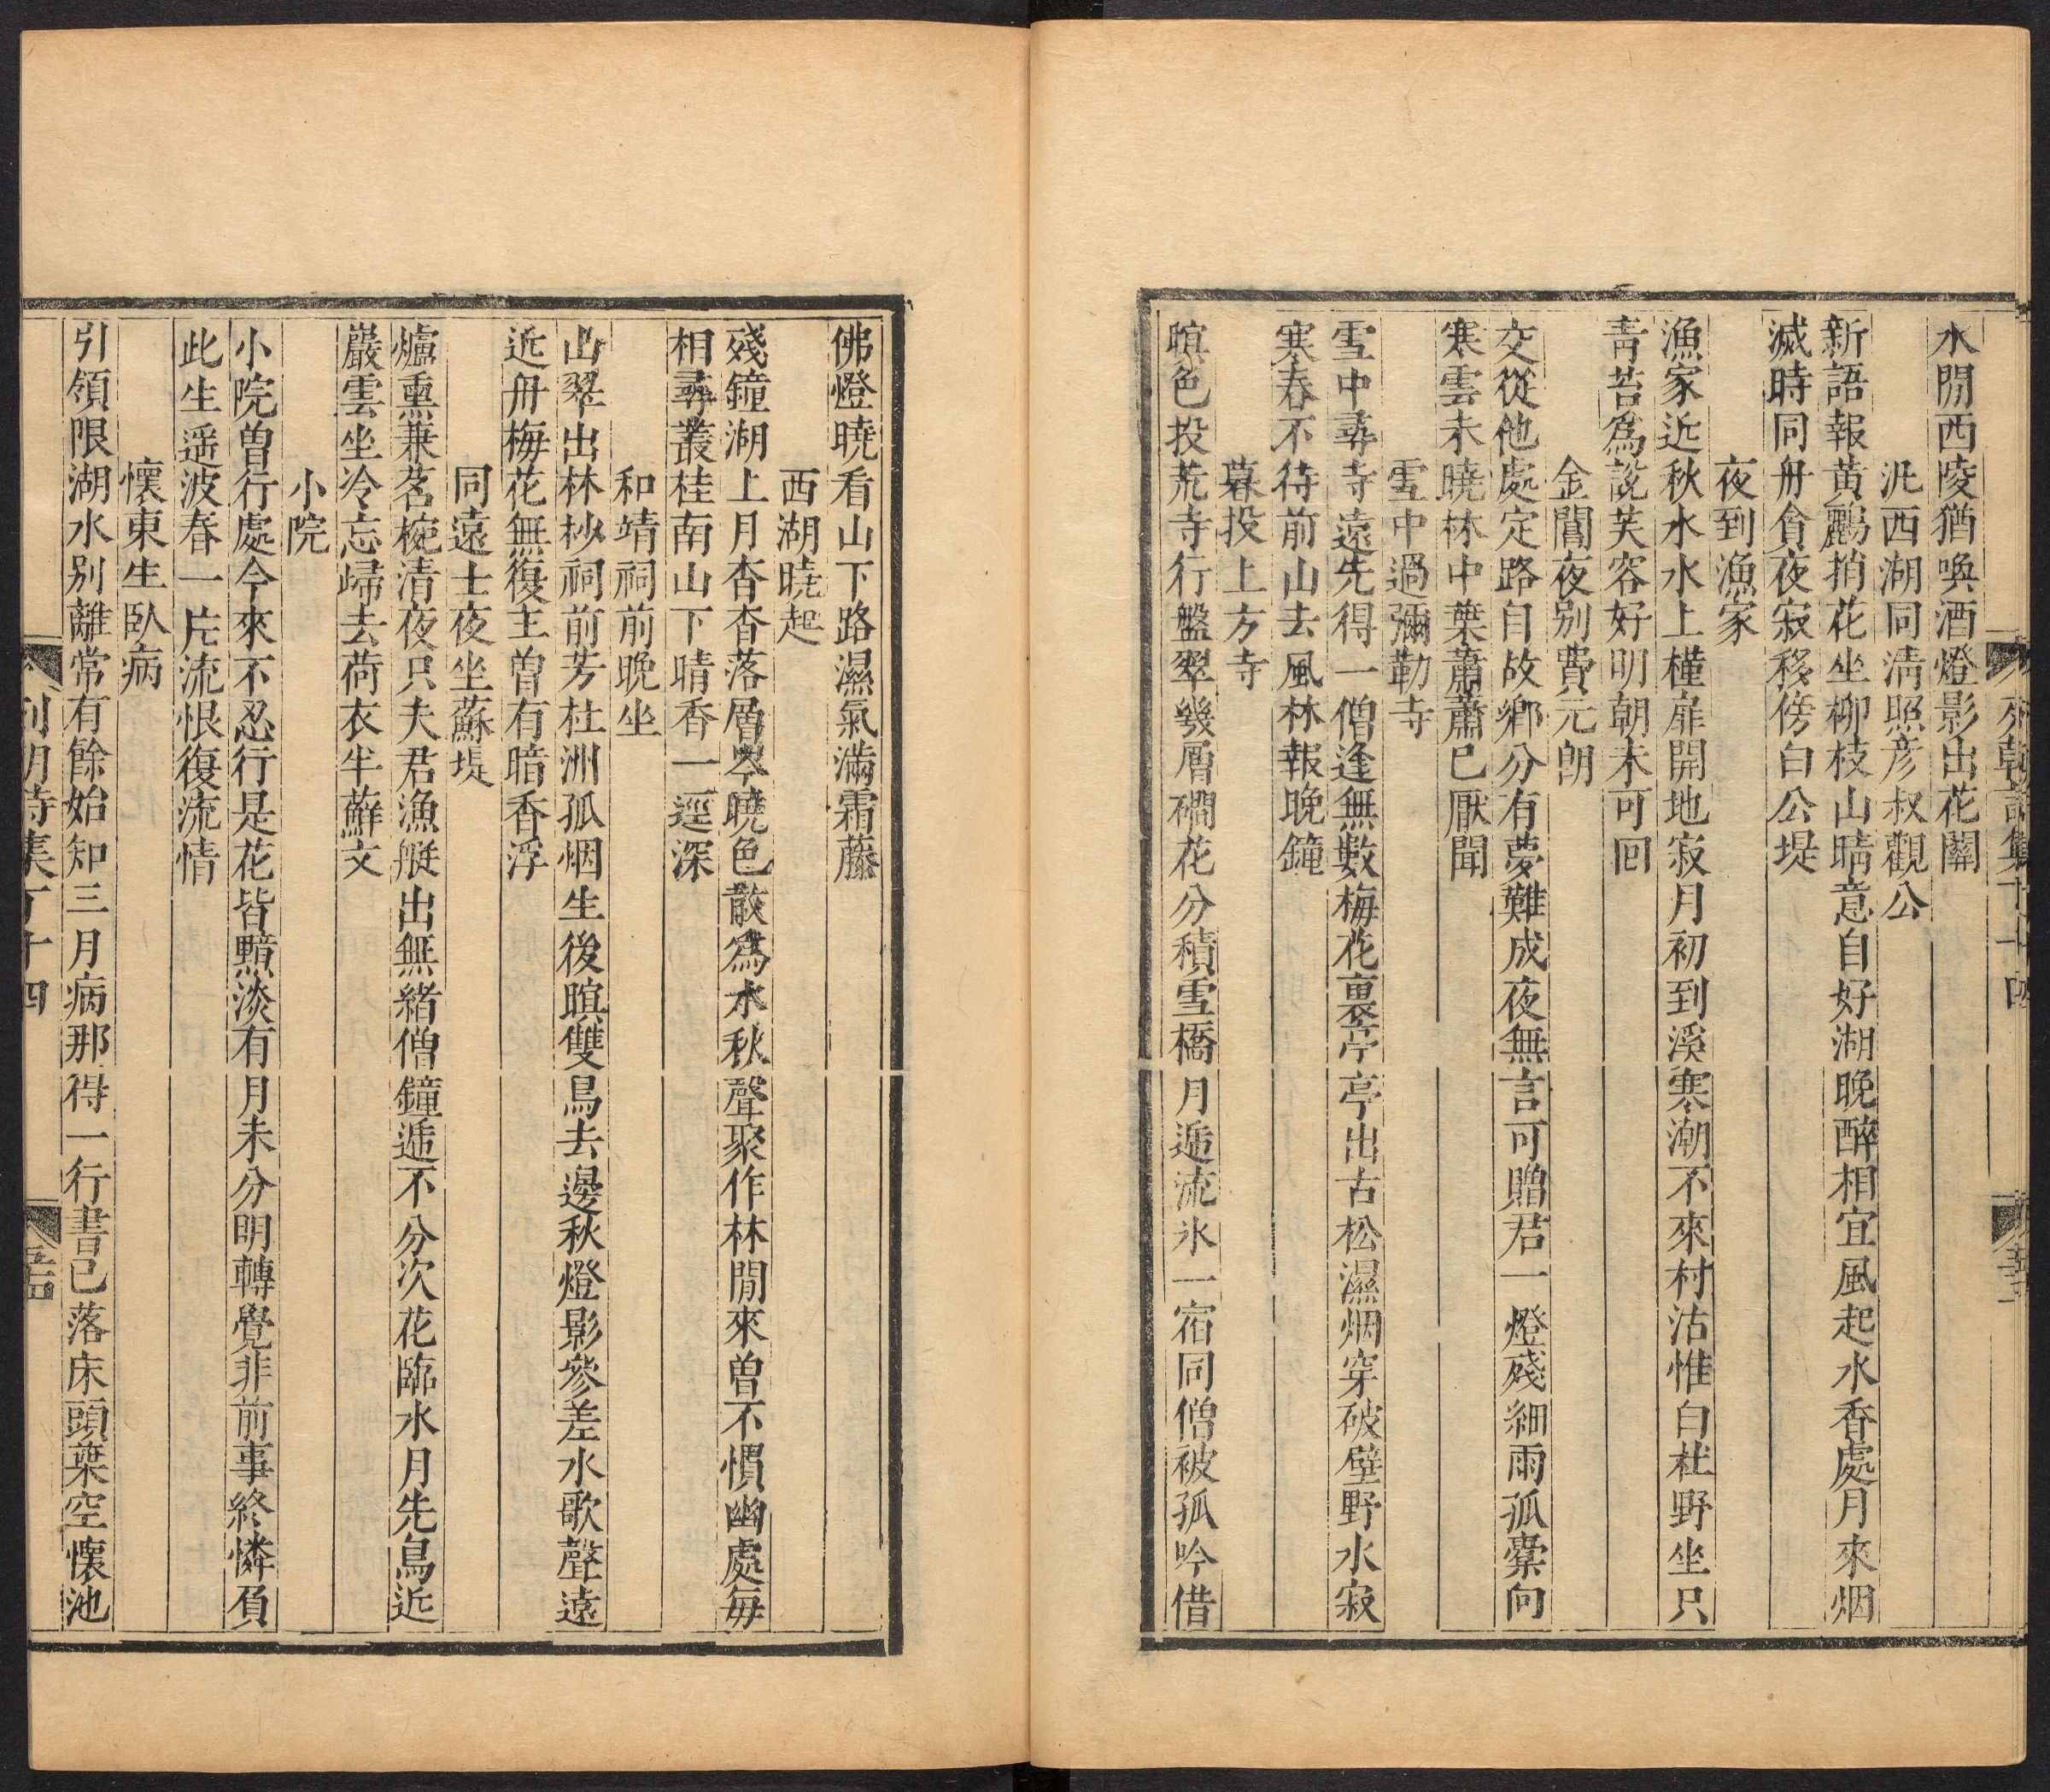 水閒西陵猶喚酒燈影出花關
汎西湖同淸照彦叔觀公
新語報黃鸝捎花坐柳枝山晴意自好湖晚醉相宜風起水香處月來烟
滅時同舟貪夜寂移傍白公堤
夜到漁家
漁家近秋水水上槿扉開地寂月初到溪寒潮不來村沽惟白社野坐只
靑苔爲說芙容好明朝未可回
金閶夜别費元朗
交從他處定路自故鄕分有夢難成夜無言可贈君一燈殘細雨孤櫂向
寒雲未曉林中葉蕭蕭已厭聞
雪中過彌勒寺
雪中尋寺遠先得一僧逢無數梅花裏亭亭出古松濕烟穿破壁野水寂
寒春不待前山去風林報晚鐘
暮投上方寺
暝色投荒寺行盤翠幾層礀花分積雪橋月遁流氷一宿同僧被孤吟借
佛燈曉看山下路濕氣滿霜藤
西湖曉起
殘鐘湖上月杳杳落層岑曉色散爲水秋聲聚作林閒來曾不慣幽處每
相尋叢桂南山下晴香一逕深
和靖祠前晚坐
山翠出林杪祠前芳杜洲孤烟生後暝雙鳥去邊秋燈影參差水歌聲遠
近舟梅花無復主曾有暗香浮
同遠士夜坐蘇堤
爐熏兼茗椀清夜只夫君漁艇出無緒僧鐘遁不分次花臨水月先鳥近
巖雲坐冷忘歸去荷衣半蘚文
小院
小院曾行處今來不忍行是花皆黯淡有月未分明轉覺非前事終憐負
此生遥波春一片流恨復流情
懷東生臥病
引領限湖水别離常有餘始知三月病那得一行書已落床頭葉空懷池
列朝詩集丁十四